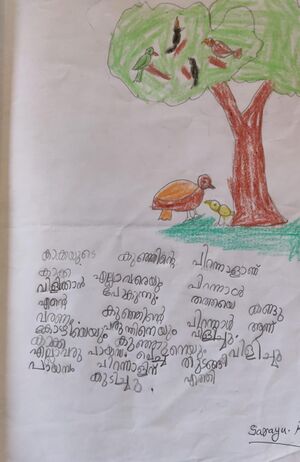 കാക്കയുടെ കുഞ്ഞിന്റെ പിറന്നാളാണ്
കാക്ക എല്ലാവരെയും പിറന്നാൾ
വിളിതാൻ പോകുന്നു തത്തയെ കണ്ടു
എന്റെ കുഞ്ഞിന്റെ പിറന്നാൾ ആണ്
വരണം പരുന്തിനെയും വിളിച്ചു
കോഴിയെയും കുഞ്ഞുനെയും വിളിച്ചു
കാക്ക പായസം വെച്ച് തുടങ്ങി
എല്ലാവരു പിറന്നാളിന് എത്തി
പായസം കുടിച്ചു.
Sarayu.